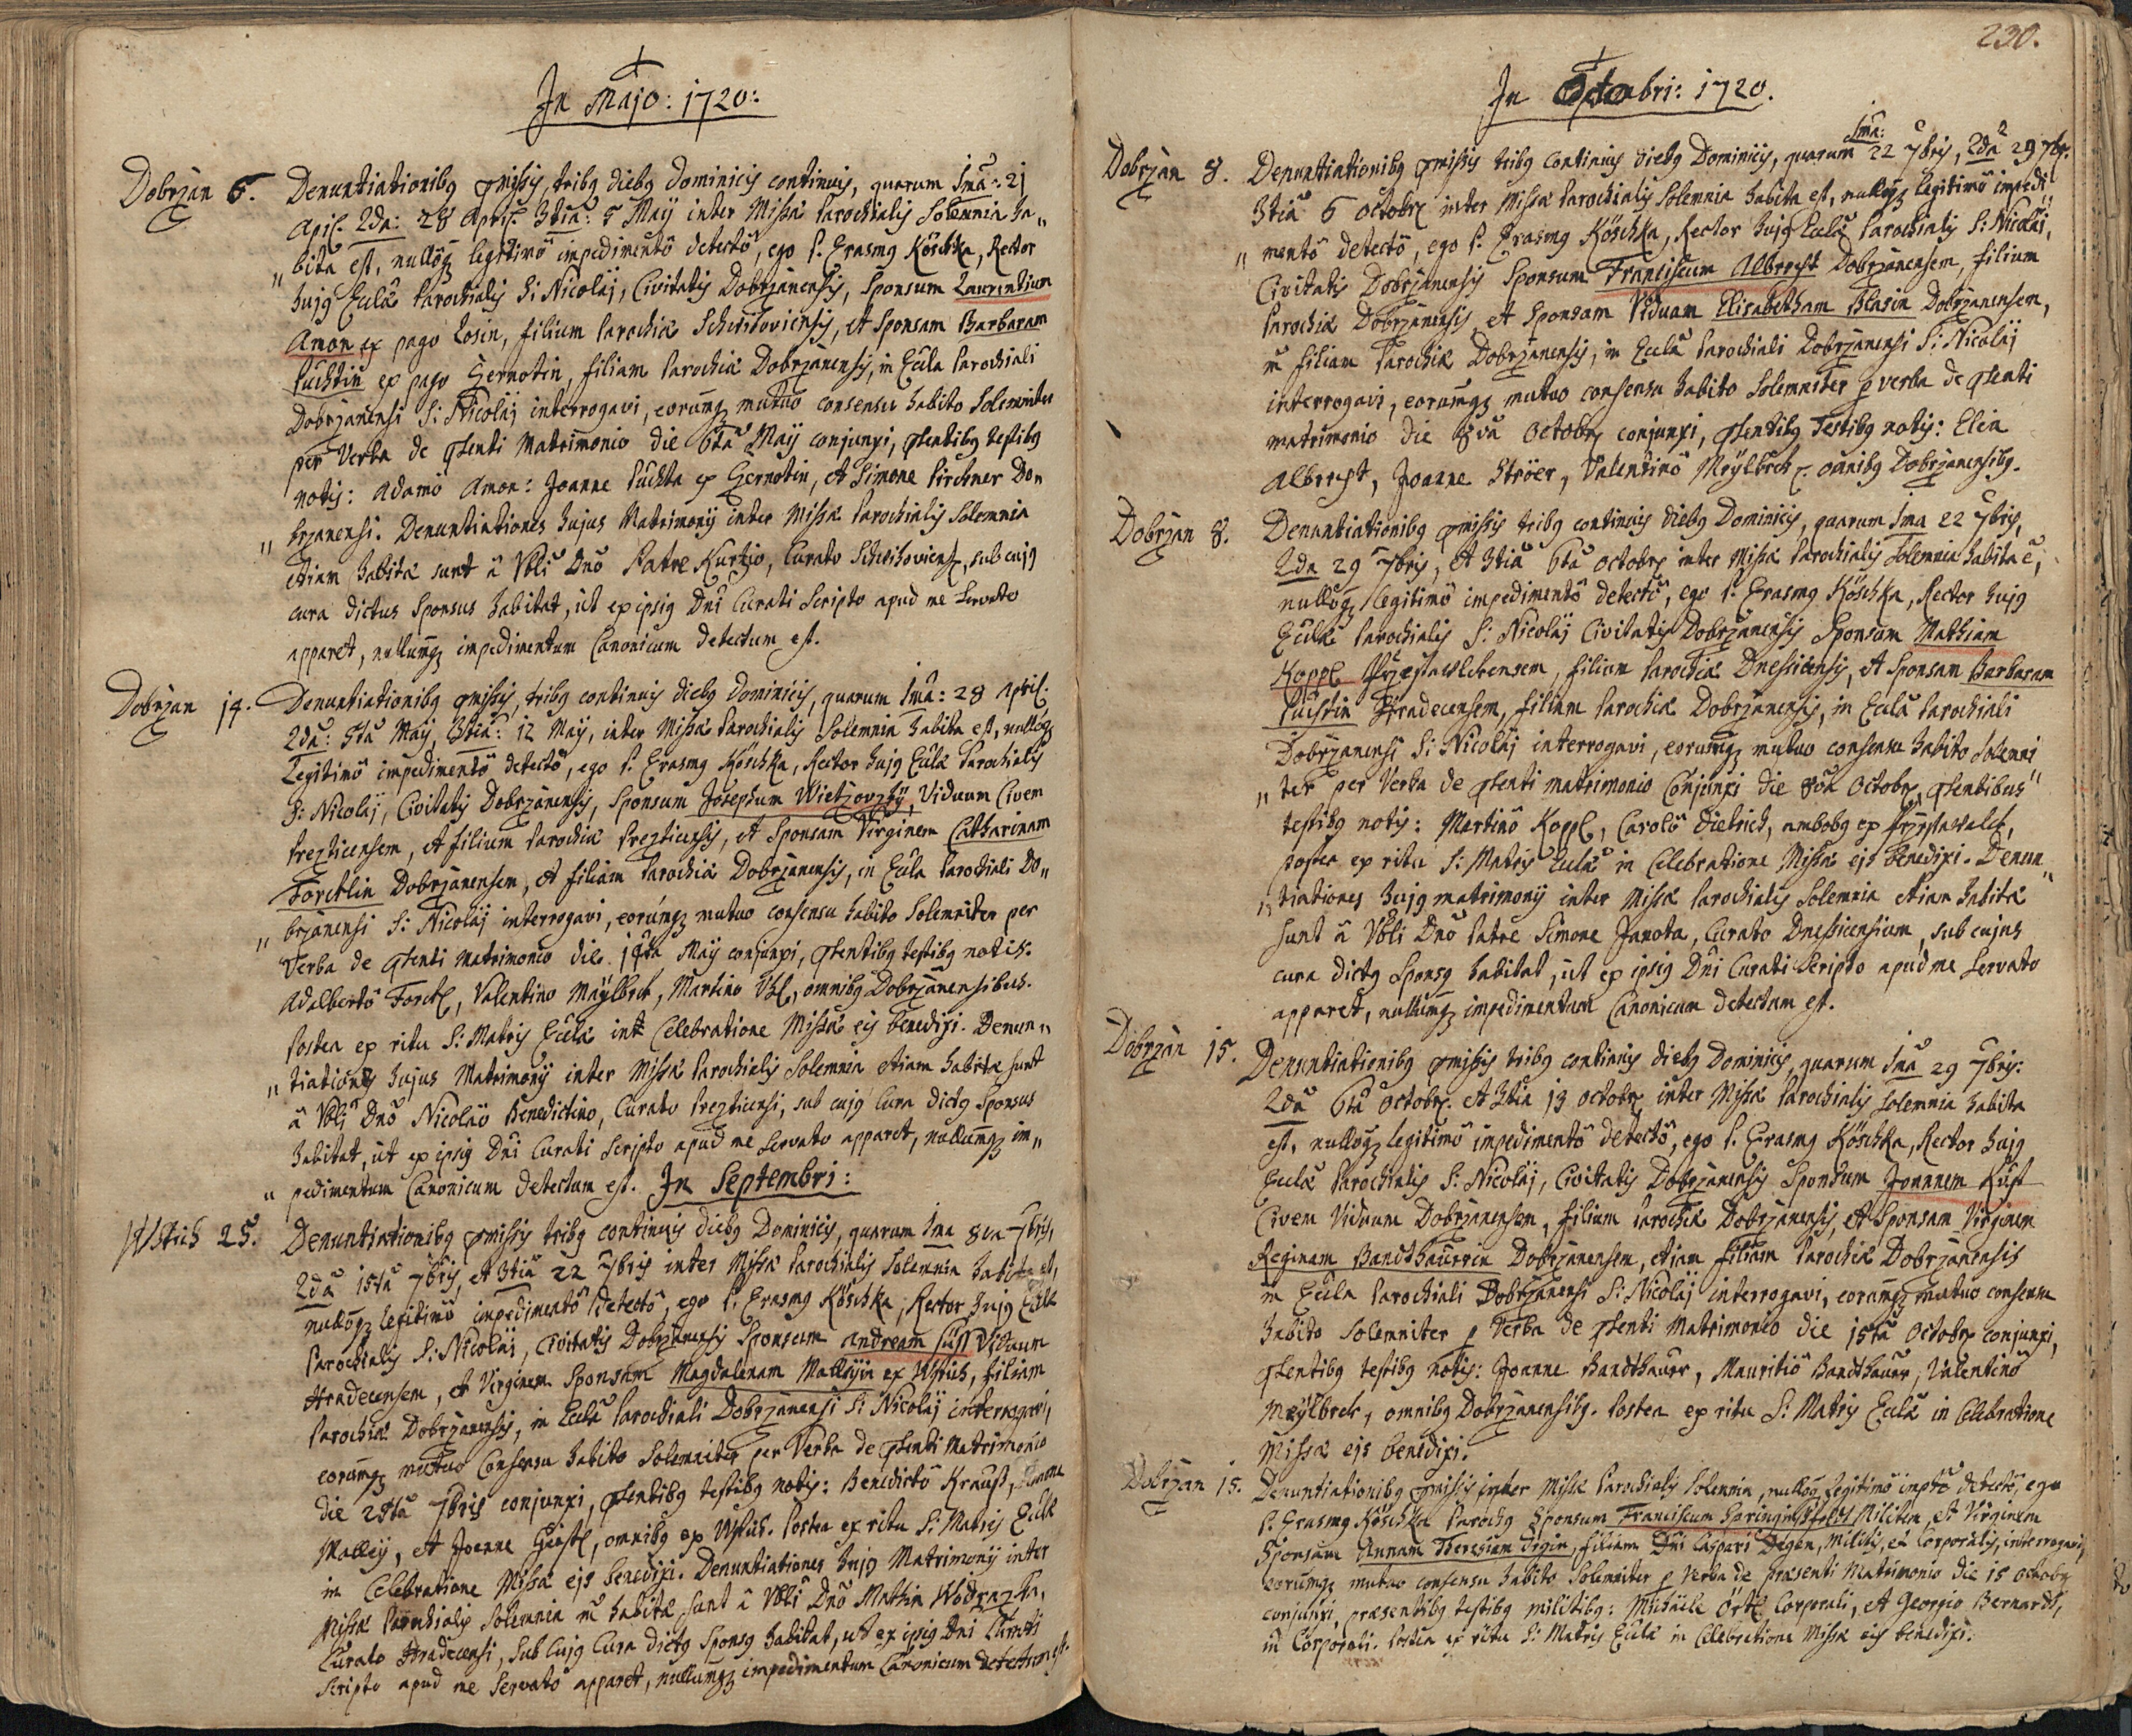 In Majo: 1720:
Dobrzan 6. Denuntiationibq pmissis, tribq diebq Dominicis continuis, quarum 1ma: 21
April. 2da: 28 April. 3tia: 5 Maij inter Missæ Parochialis Solemnia ha„
„ bita est, nulloq; legitimo impedimento detecto, ego P. Erasmq Köschka, Rector
hujq Eccliæ Parochialis S: Nicolaij, Civitatis Dobrzanensis, Sponsum Laurentium
Amon ex pago Losin, filium Parochiæ Schwihoviensis, et Sponsam Barbaram
Puchtin ex pago Gernotin, filiam Parochiæ Dobrzanensis, in Eccla Parochiali
Dobrzanensi S: Nicolaij interrogavi, eorumq; mutuo consensu habito Solemniter
per Verba de pntenti Matrimonio die 6ta Maij conjunxi, pntentibq testibq
notis: Adamo Amon: Joanne Puchta ex Gernotin, et Simone Pirchner Do„
„ brzanensi. Denuntiationes hujus Matrimonij inter Missæ Parochialis Solemnia
etiam habitæ sunt â Vbli Dno Patre Kurtzio, Curato Schwihoviens, sub cujq
cura dictus Sponsus habitat, ut ex ipsiq Dni Curati Scripto apud me Servato
apparet, nullumq; impedimentum Canonicum detectum est.
Dobrzan 14. Denuntiationibq pmissis, tribq continuis diebq Dominicis, quarum 1ma: 28 April:
2da: 5ta Maij, 3tia: 12 Maij, inter Missæ Parochialis Solemnia habita est, nulloq;
Legitimo impedimento detecto, ego P. Erasmq Köschka, Rector hujq Eccliæ Parochialis
S: Nicolaij, Civitatis Dobrzanensis, Sponsum Josephum Wietzovzkij, Viduum Civem
Prezticensem, et filium Parochiæ Prezticensis, et Sponsam Virginem Catharinam
Forcklin Dobrzanensem, et filiam Parochiæ Dobrzanensis, in Eccla Parochiali Do„
„ brzanensi S: Nicolaij interrogavi, eorumq; mutuo consensu habito Solemniter per
Verba de pntenti Matrimonio die 14ta Maij conjunxi, pntentibq testibq notis:
Adalberto Forckl, Valentino Maÿlbek, Martino Vhl, omnibq Dobrzanensibus.
Postea ex ritu S: Matris Eccliæ in Celebratione Missæ eis benedixi. Denun„
„ tiationes hujus Matrimonij inter Missæ Parochialis Solemnia etiam habitæ sunt
â Vbli Dno Nicolao Benedictino, Curato Prezticensi, sub cujq Cura dictq Sponsus
habitat, ut ex ipsiq Dni Curati Scripto apud me Servato apparet, nullumq; im„
„ pedimentum Canonicum detectum est. In Septembri:
Wstich 25. Denuntiationibq pmissis tribq continuis diebq Dominicis, quarum 1ma 8va 7bris,
2da 15ta 7bris, et 3tia 22 7bris inter Missæ Parochialis Solemnia habita est,
nulloq; legitimo impedimento detecto, ego P. Erasmq Köschka, Rector hujq Eccliæ
Parochialis S: Nicolaij, Civitatis Dobrzanensis Sponsum Andream Süss Viduum
Hradecensem, et Virginem Sponsam Magdalenam Malleÿin ex Wstich, filiam
Parochiæ Dobrzanensis, in Eccla Parochiali Dobrzanensi S: Nicolaij interrogavi,
eorumq; mutuo Consensu habito Solemniter per Verba de pntenti Matrimonio
die 25ta 7bris conjunxi, pntentibq testibq notis: Benedicto Krauss, Simone
Malleÿ, et Joanne Gerstl, omnibq ex Wstich. Postea ex ritu S: Matris Eccliæ
in Celebratione Missæ eis benedixi. Denuntiationes hujq Matrimonij inter
Missæ Parochialis Solemnia habitæ sunt â Vbli Dno Mathia Wodrazka,
Curato Hradecensi, Sub Cujq Cura dictq Sponsq habitat, ut ex ipsiq Dni Curati
Scripto apud me Servato apparet, nullumq; impedimentum Canonicum detectum est.
230.
In Octobri: 1720.
Dobrzan 8. Denuntiationibq pmissis tribq continuis diebq Dominicis, quarum 1ma: 22 7bris, 2da 29 7br.
3tia 6 Octobr inter Missæ Parochialis Solemnia habita est, nulloq; legitimo impedi„
„ mento detecto, ego P. Erasmq Köschka, Rector hujq Eccliæ Parochialis S: Nicolaij,
Civitatis Dobrzanensis Sponsum Franciscum Albrecht Dobrzanensem, filium
Parochiæ Dobrzanensis, et Sponsam Viduam Elisabetham Blasin Dobrzanensem,
filiam Parochiæ Dobrzanensis, in Eccla Parochiali Dobrzanensi S: Nicolaij
interrogavi, eorumq; mutuo consensu habito Solemniter p verba de pntenti
matrimonio die 8va Octobr conjunxi, pntentibq Testibq notis: Elia
Albrecht, Joanne Ströer, Valentino Meÿlbek, omnibq Dobrzanensibq.
Dobrzan 8. Denuntiationibq pmissis tribq continuis diebq Dominicis, quarum 1ma 22 7bris,
2da 29 7bris, et 3tia 6ta Octobr inter Missæ Parochialis Solemnia habita e,
nulloq; legitimo impedimento detecto, ego P. Erasmq Köschka, Rector hujq
Eccliæ Parochialis S: Nicolaij Civitatis Dobrzanensis Sponsum Mathiam
Koppl Przestawlchensem, filium Parochiæ Dnessicensis, et Sponsam Barbaram
Puchtin Hradecensem, filiam Parochiæ Dobrzanensis, in Eccla Parochiali
Dobrzanensi S: Nicolaij interrogavi, eorumq; mutuo consensu habito Solemni
„ ter per Verba de pntenti matrimonio Conjunxi die 8va Octobr, pntentibus
testibq notis: Martino Koppl, Carolo Dietrich, ambobq ex Przestawalek,
postea ex ritu S: Matris Eccliæ in Celebratione Missæ eis benedixi. Denun„
„ tiationes hujq matrimonij inter Missæ Parochialis Solemnia etiam habitæ
sunt â Vbli Dno Patre Simone Janota, Curato Dnessicensium, sub cujus
cura dictq Sponsq habitat, ut ex ipsiq Dni Curati Scripto apud me Servato
apparet, nullumq; impedimentum Canonicum detectum est.
Dobrzan 15. Denuntiationibq pmissis tribq continuis diebq Dominicis, quarum 1ma 29 7bris:
2da 6ta Octobr. et 3tia 13 Octobr inter Missæ Parochialis Solemnia habita
est, nulloq; legitimo impedimento detecto, ego P. Erasmq Köschka, Rector hujq
Eccliæ Parochialis S: Nicolaij, Civitatis Dobrzanensis Sponsum Joannem Kust
Civem Viduum Dobrzanensem, filium Parochiæ Dobrzanensis, et Sponsam Virginem
Reginam Bandthauerin Dobrzanensem, etiam filiam Parochiæ Dobrzanensis
in Eccla Parochiali Dobrzanensi S: Nicolaij interrogavi, eorumq; mutuo consensu
habito Solemniter p Verba de pntenti Matrimonio die 15ta Octobr conjunxi,
pntentibq testibq notis: Joanne Bandthauer, Mauritio Bandthauer, Valentino
Meÿlbek, omnibq Dobrzanensibq. Postea ex ritu S: Matris Eccliæ in Celebratione
Missæ eis benedixi.
Dobrzan 15. Denuntiationibq pmissis inter Missæ Parochialis Solemnia, nulloq; legitimo impto detecto, ego
P. Erasmq Köschka Parochq Sponsum Franciscum Militem, et Virginem
Sponsam Annam Theresiam Degin, filiam Dni Caspari Degen, Militis, et Corporalis, interrogavi,
eorumq; mutuo consensu habito Solemniter p Verba de præsenti Matrimonio die 15 Octobr
conjunxi, præsentibq testibq militibq: Michaele Örtl Corporali, et Georgio Bernardt,
Corporali. Postea ex ritu S: Matris Eccliæ in Celebratione Missæ eis benedixi.